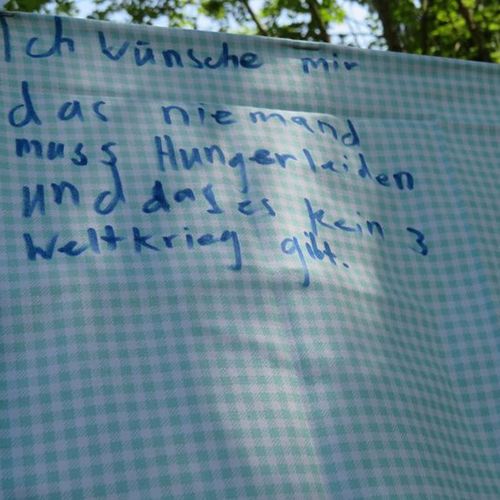 Ich wünsche mir
das niemand
muss Hungerleiden
und das es kein 3
Weltkrieg gibt.